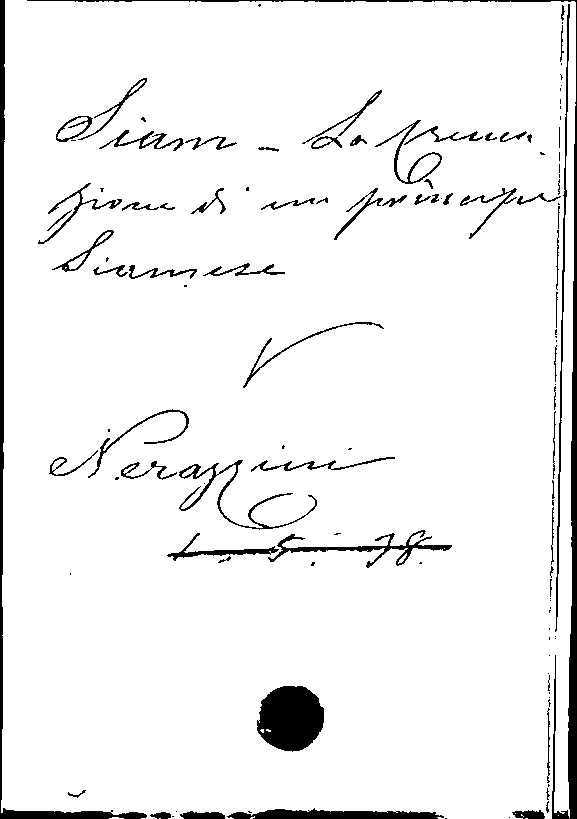 Siam - La crema
zione di un principe
Siamese
V
Nerazzini
1. 5. 78.